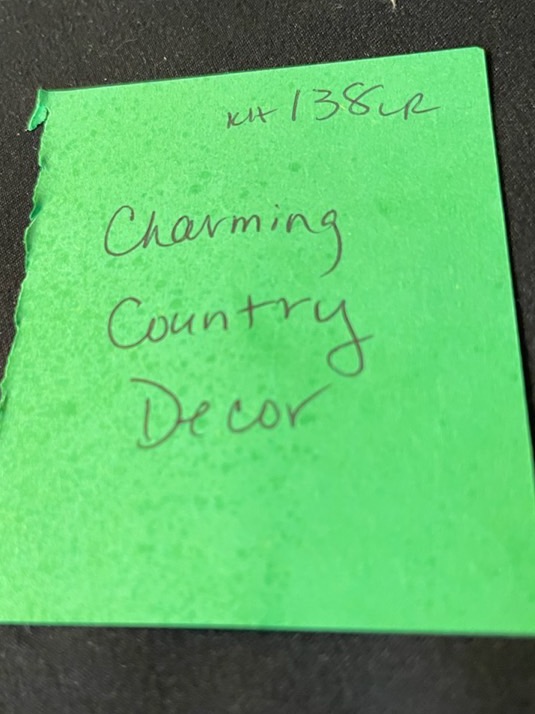 KH 138LR
Charming
Country
Decor